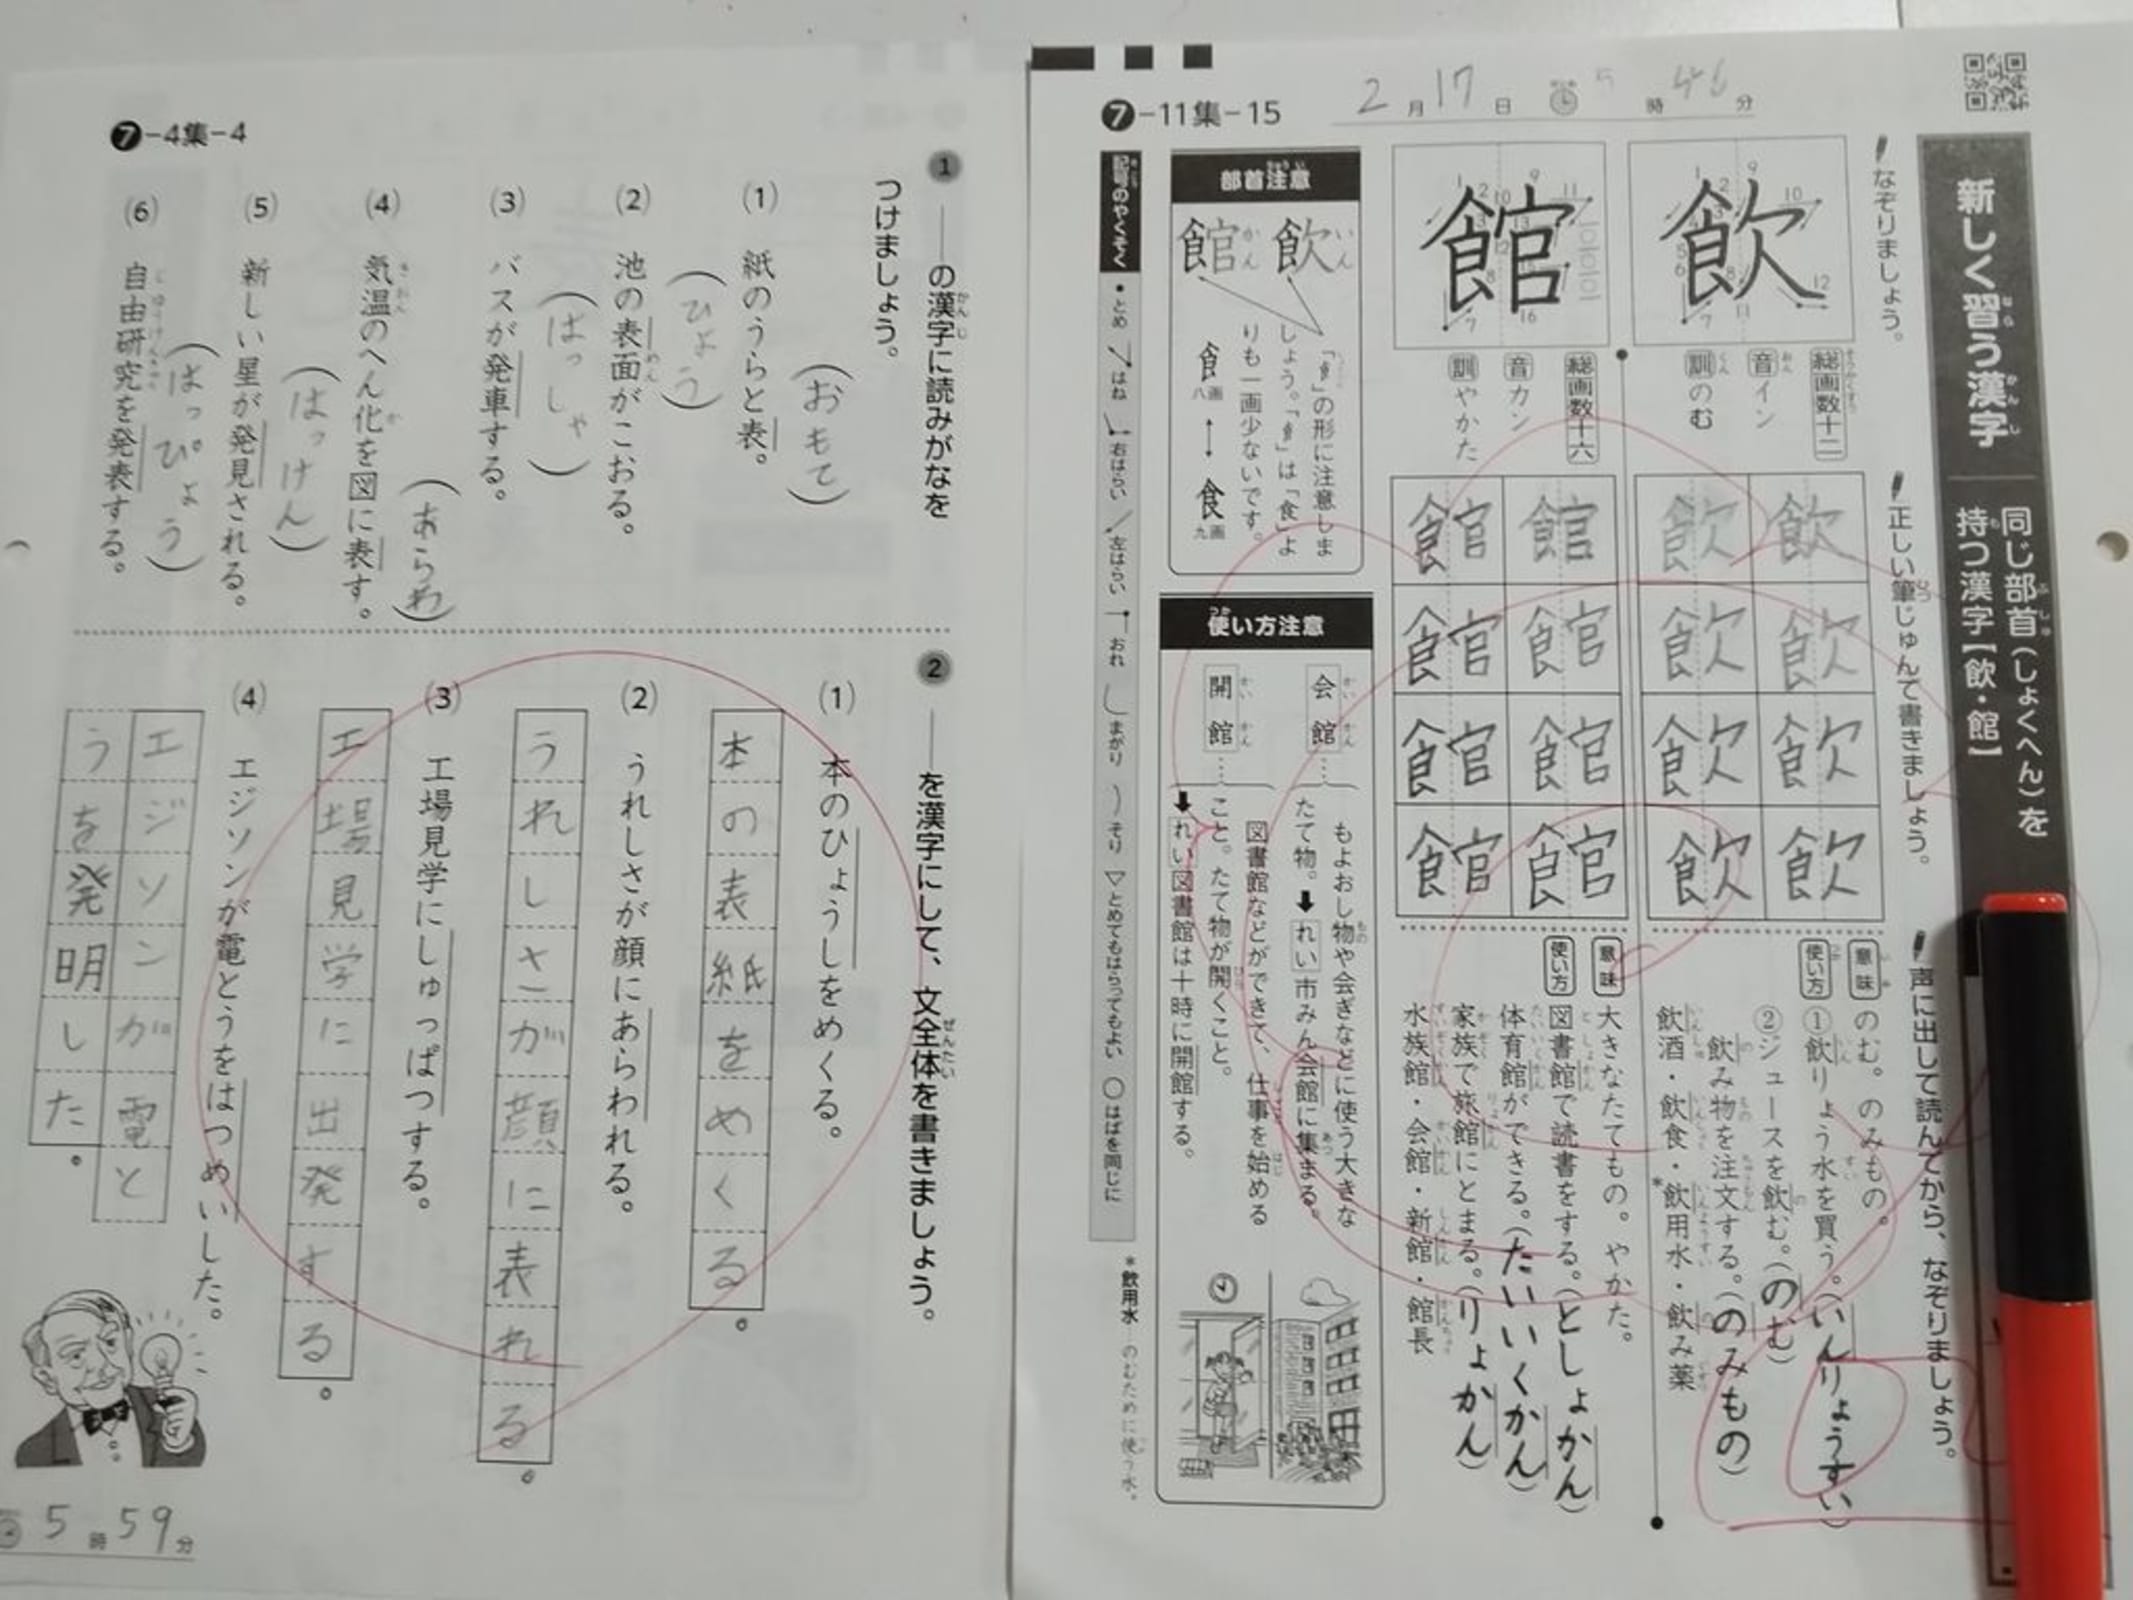 7-11集-15
2月17日 5時46分
新しく習う漢字
同じ部首(しょくへん)を
持つ漢字【飲・館】
なぞりましょう。
飲
総画数十二
音イン
訓のむ
館
総画数十六
音カン
訓やかた
正しい筆じゅんで書きましょう。
飲 飲
飲 飲
飲 飲
飲 飲
館 館
館 館
館 館
館 館
声に出して読んでから、なぞりましょう。
意味 のむ。のみもの。
使い方 ①飲りょう水を買う。(いんりょうすい)
②ジュースを飲む。(のむ)
飲み物を注文する。(のみもの)
飲酒・飲食・*飲用水・飲み薬
意味 大きなたてもの。やかた。
使い方 図書館で読書をする。(としょかん)
体育館ができる。(たいいくかん)
家族で旅館にとまる。(りょかん)
水族館・会館・新館・館長
部首注意
飲 館
「飠」の形に注意しま
しょう。「飠」は「食」よ
りも一画少ないです。
飠八画↔食九画
使い方注意
会館……もよおし物や会ぎなどに使う大きな
たて物。➡れい市みん会館に集まる。
開館……図書館などができて、仕事を始める
こと。たて物が開くこと。
➡れい図書館は十時に開館する。
記号のやくそく
・とめ はね 右はらい 左はらい おれ まがり そり ▽とめてもはらってもよい ○はばを同じに
*飲用水…のむために使う水。
7-4集-4
1 ――の漢字に読みがなを
つけましょう。
(1) 紙のうらと表。
(おもて)
(2) 池の表面がこおる。
(ひょう)
(3) バスが発車する。
(はっしゃ)
(4) 気温のへん化を図に表す。
(あらわ)
(5) 新しい星が発見される。
(はっけん)
(6) 自由研究を発表する。
(はっぴょう)
2 ――を漢字にして、文全体を書きましょう。
(1) 本のひょうしをめくる。
本の表紙をめくる。
(2) うれしさが顔にあらわれる。
うれしさが顔に表れる。
(3) 工場見学にしゅっぱつする。
工場見学に出発する。
(4) エジソンが電とうをはつめいした。
エジソンが電と
うを発明した。
5時59分